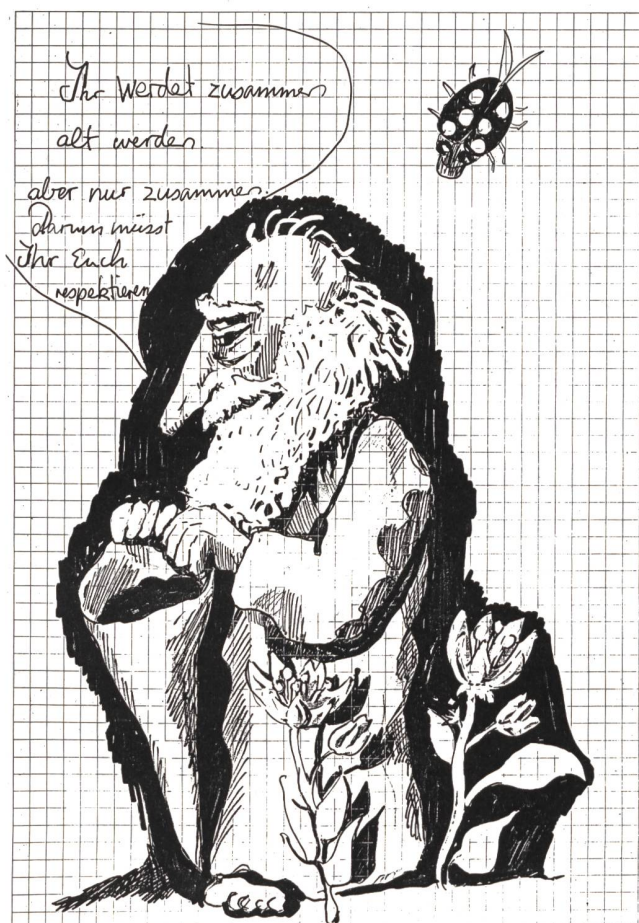 Ihr Werdet zusammen
alt werden.
aber nur zusammen.
Darum müsst
Ihr Euch
respektieren